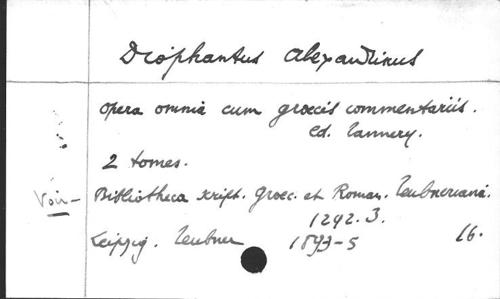 Diophantus Alexandrinus
Opera omnia cum graecis commentariis.
ed. Tannery.
2 tomes.
Voir - Bibliotheca script. Graec. et Roman. Teubneriana.
1292.3.
Leipzig. Teubner 1893-5 16.